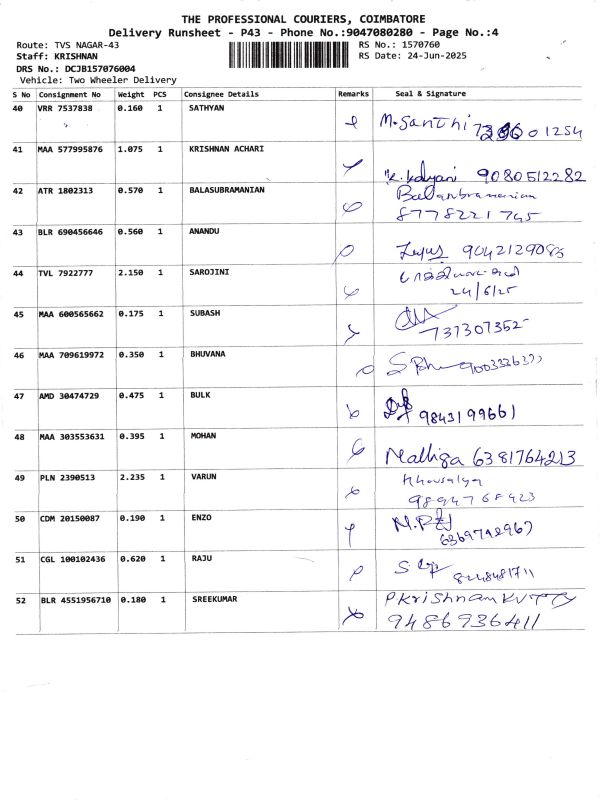 THE PROFESSIONAL COURIERS, COIMBATORE
Delivery Runsheet - P43 - Phone No.:9047080280 - Page No.:4
Route: TVS NAGAR-43
RS No.: 1570760
Staff: KRISHNAN
RS Date: 24-Jun-2025
DRS No.: DCJB157076004
Vehicle: Two Wheeler Delivery
S No Consignment No Weight PCS Consignee Details Remarks Seal & Signature
40 VRR 7537838 0.160 1 SATHYAN M.Santhi
41 MAA 577995876 1.075 1 KRISHNAN ACHARI K.Kalyani 9080512282
42 ATR 1802313 0.570 1 BALASUBRAMANIAN Balasubramanian
8778221745
43 BLR 690456646 0.560 1 ANANDU 9042129086
44 TVL 7922777 2.150 1 SAROJINI
24/6/25
45 MAA 600565662 0.175 1 SUBASH
737307352
46 MAA 709619972 0.350 1 BHUVANA
47 AMD 30474729 0.475 1 BULK 9843199661
48 MAA 303553631 0.395 1 MOHAN Malliga 6381764213
49 PLN 2390513 2.235 1 VARUN Khousalya
9894768423
50 CDM 20150087 0.190 1 ENZO
6369742967
51 CGL 100102436 0.620 1 RAJU
52 BLR 4551956710 0.180 1 SREEKUMAR PKrishnanKUTTY
9486936411